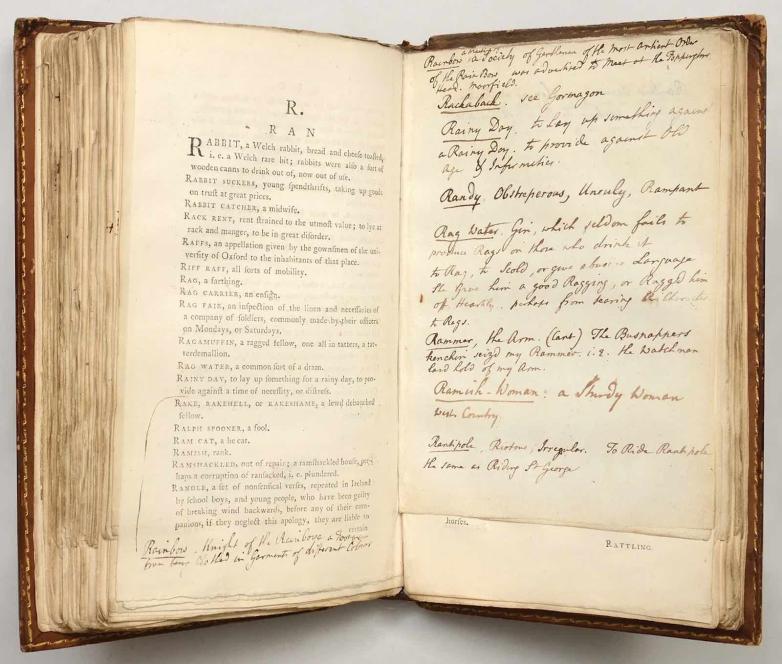 R.
RAN
RABBIT, a Welch rabbit, bread and cheese toasted,
i. e. a Welch rare bit; rabbits were also a sort of
wooden canns to drink out of, now out of use.
RABBIT SUCKERS, young spendthrifts, taking up goods
on trust at great prices.
RABBIT CATCHER, a midwife.
RACK RENT, rent strained to the utmost value; to lye at
rack and manger, to be in great disorder.
RAFFS, an appellation given by the gownsmen of the uni-
versity of Oxford to the inhabitants of that place.
RIFF RAFF, all sorts of mobility.
RAG, a farthing.
RAG CARRIER, an ensign.
RAG FAIR, an inspection of the linen and necessaries of
a company of soldiers, commonly made by their officers
on Mondays, or Saturdays.
RAGAMUFFIN, a ragged fellow, one all in tatters, a tat-
terdemallion.
RAG WATER, a common sort of a dram.
RAINY DAY, to lay up something for a rainy day, to pro-
vide against a time of necessity, or distress.
RAKE, RAKEHELL, or RAKESHAME, a lewd debauched
fellow.
RALPH SPOONER, a fool.
RAM CAT, a he cat.
RAMMISH, rank.
RAMSHACKLED, out of repair; a ramshackled house, per-
haps a corruption of ransacked, i. e. plundered.
RANDLE, a set of nonsensical verses, repeated in Ireland
by school boys, and young people, who have been guilty
of breaking wind backwards, before any of their com-
panions, if they neglect this apology, they are liable to
certain
Rainbow. Knight of the Rainbow a
from being Clothed in Garments of different Colours
Rainbow a Society of Gentlemen of the most Antient Order
of the RainBow was advertised to Meet at the
Head. Moorfield.
Rackaback. see Gormagon
Rainy Day. to lay up something against
a Rainy Day. to provide against Old
Age & Infirmities.
Randy. Obstreperous, Unruly, Rampant
Rag Water. Gin, which seldom fails to
produce Rags on those who drink it
to Rag, to Scold, or give abusive Language
He gave him a good Ragging, or Ragg'd him
off Heartily. perhaps from tearing
to Rags.
Rammer, the Arm. (Cant) The Busnappers
kenchin seiz'd my Rammer. i.e. the Watchman
laid hold of my Arm.
Ramish-Woman: a Sturdy Woman
West Country.
Rantipole, Riotous, Irregular. To Ride Rantipole
the same as Riding St George
horses.
RATTLING.